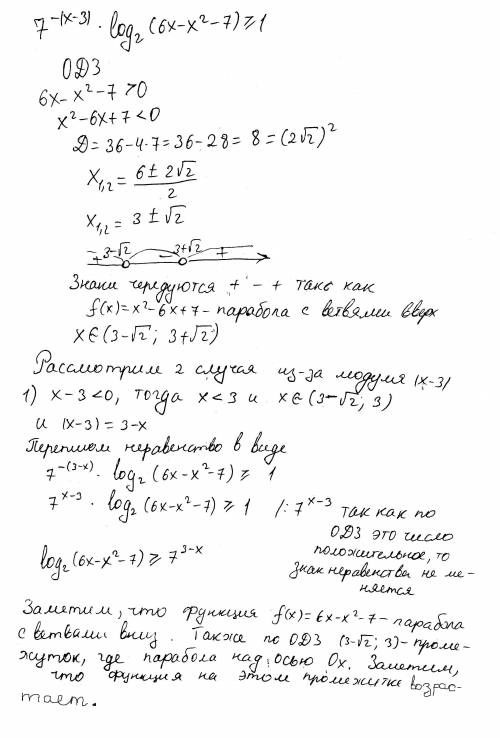 7^{-|x-3|} · log₂(6x-x²-7) ≥ 1
ОДЗ
6x-x²-7 > 0
x²-6x+7 < 0
Д = 36-4·7 = 36-28 = 8 = (2√2)²
x₁,₂ = (6 ± 2√2)/2
x₁,₂ = 3 ± √2
+ 3-√2 - 3+√2 +
Знаки чередуются + - + так как
f(x) = x²-6x+7 - парабола с ветвями вверх
x ∈ (3-√2; 3+√2)
Рассмотрим 2 случая из-за модуля |x-3|
1) x-3<0, тогда x<3 и x ∈ (3-√2; 3)
и |x-3| = 3-x
Перепишем неравенство в виде
7^{-(3-x)} · log₂(6x-x²-7) ≥ 1
7^{x-3} · log₂(6x-x²-7) ≥ 1 /: 7^{x-3} так как по
ОДЗ это число
положительное, то
знак неравенства не ме-
няется
log₂(6x-x²-7) ≥ 7^{3-x}
Заметим, что функция f(x) = 6x-x²-7 - парабола
с ветвами вниз. Также по ОДЗ (3-√2; 3) - проме-
жуток, где парабола над осью Ox. Заметим,
что функция на этом промежутке возрас-
тает.